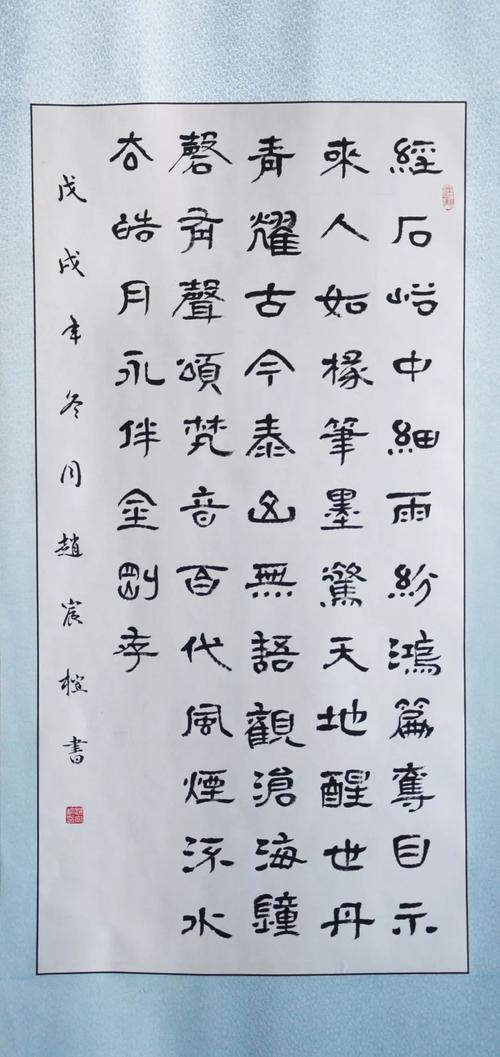 經石峪中細雨紛鴻篇奪目示
來人如椽筆墨驚天地醒世丹
青耀古今泰山無語觀滄海鐘
磬有聲頌梵音百代風煙流水
去皓月永伴金剛存
戊戌年冬月趙宸書